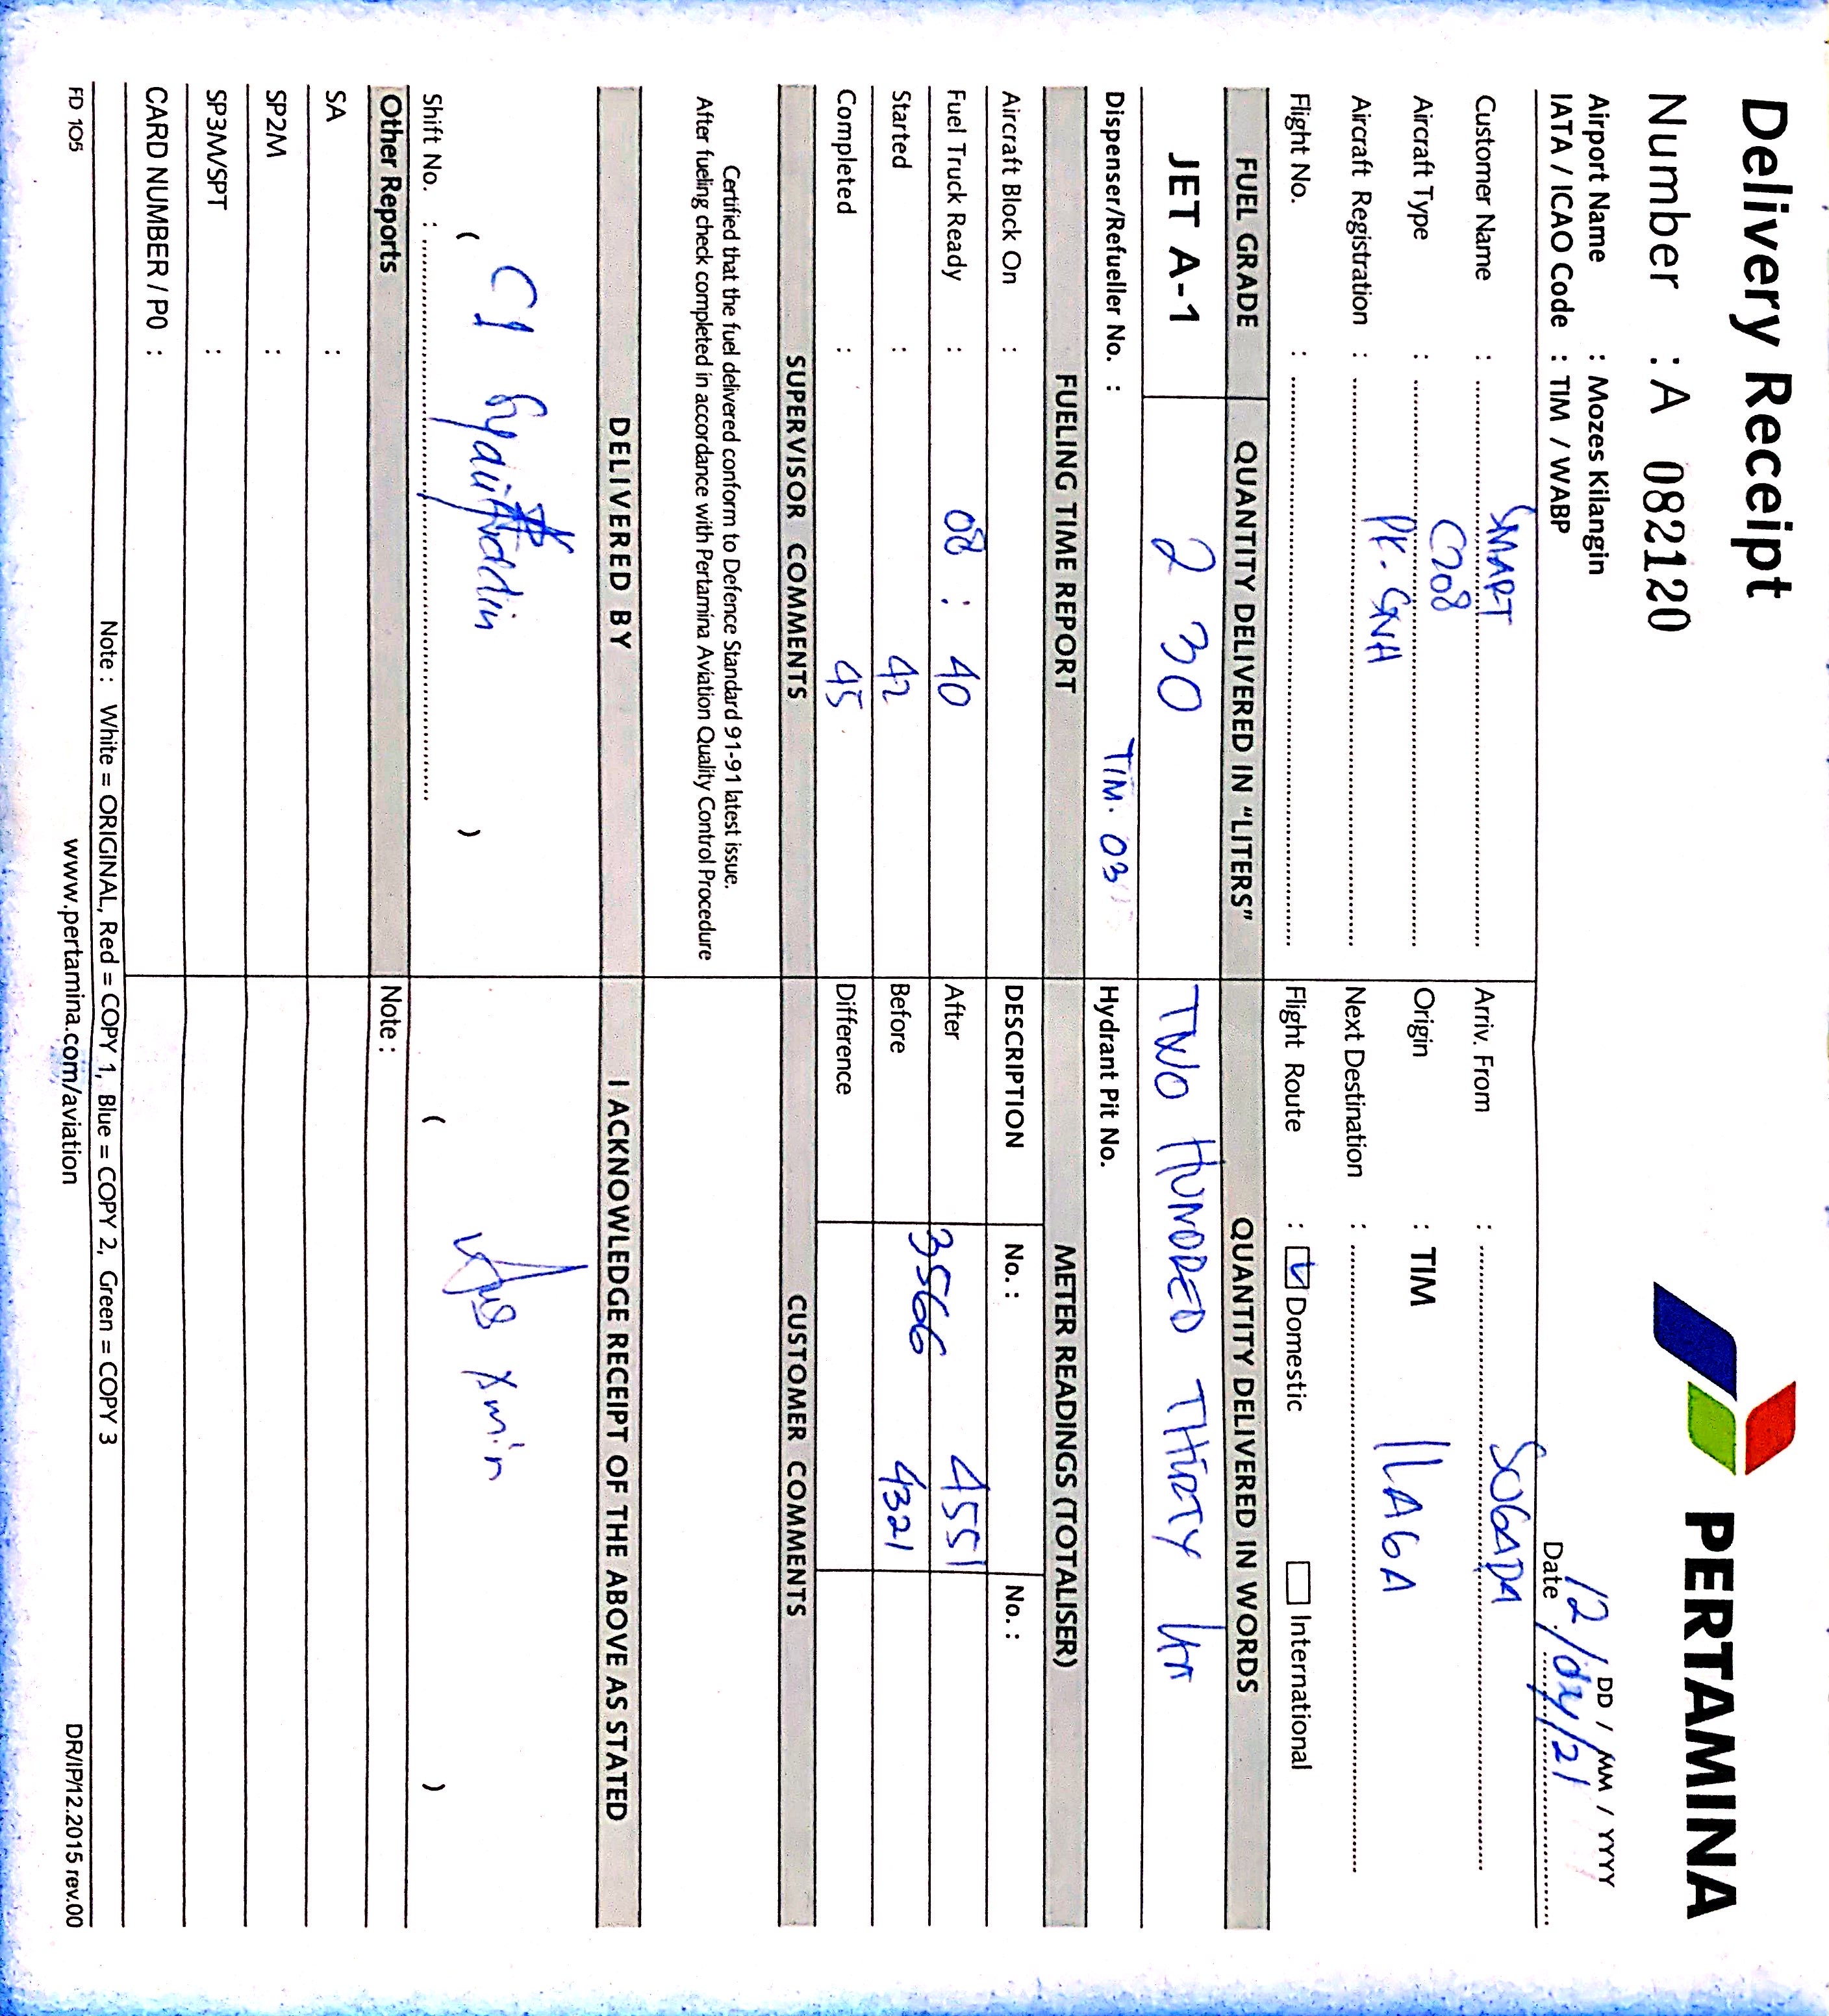 Delivery Receipt
PERTAMINA
Number : A 082120
Airport Name : Mozes Kilangin
DD / MM / YYYY
IATA / ICAO Code : TIM / WABP
Date 12/04/21
Customer Name : SMART
Arriv. From : SUGAPA
Aircraft Type : C208
Origin : TIM
Aircraft Registration : PK-SNH
Next Destination : ILAGA
Flight No. :
Flight Route : Domestic International
FUEL GRADE QUANTITY DELIVERED IN "LITERS" QUANTITY DELIVERED IN WORDS
JET A-1 2 30 TWO HUNDRED THIRTY Ltr
Dispenser/Refueller No. : TIM. 03
Hydrant Pit No.
FUELING TIME REPORT METER READINGS (TOTALISER)
Aircraft Block On :
DESCRIPTION No. : No. :
Fuel Truck Ready : 08 : 40
After 3566 4551
Started : 42
Before 4321
Completed : 45
Difference
SUPERVISOR COMMENTS CUSTOMER COMMENTS
Certified that the fuel delivered conform to Defence Standard 91-91 latest issue.
After fueling check completed in accordance with Pertamina Aviation Quality Control Procedure
DELIVERED BY I ACKNOWLEDGE RECEIPT OF THE ABOVE AS STATED
C1
( ) ( )
Shift No. :
Other Reports Note :
SA :
SP2M :
SP3M/SPT :
CARD NUMBER / PO :
Note : White = ORIGINAL, Red = COPY 1, Blue = COPY 2, Green = COPY 3
FD 105 www.pertamina.com/aviation DR/IP/12.2015 rev.00